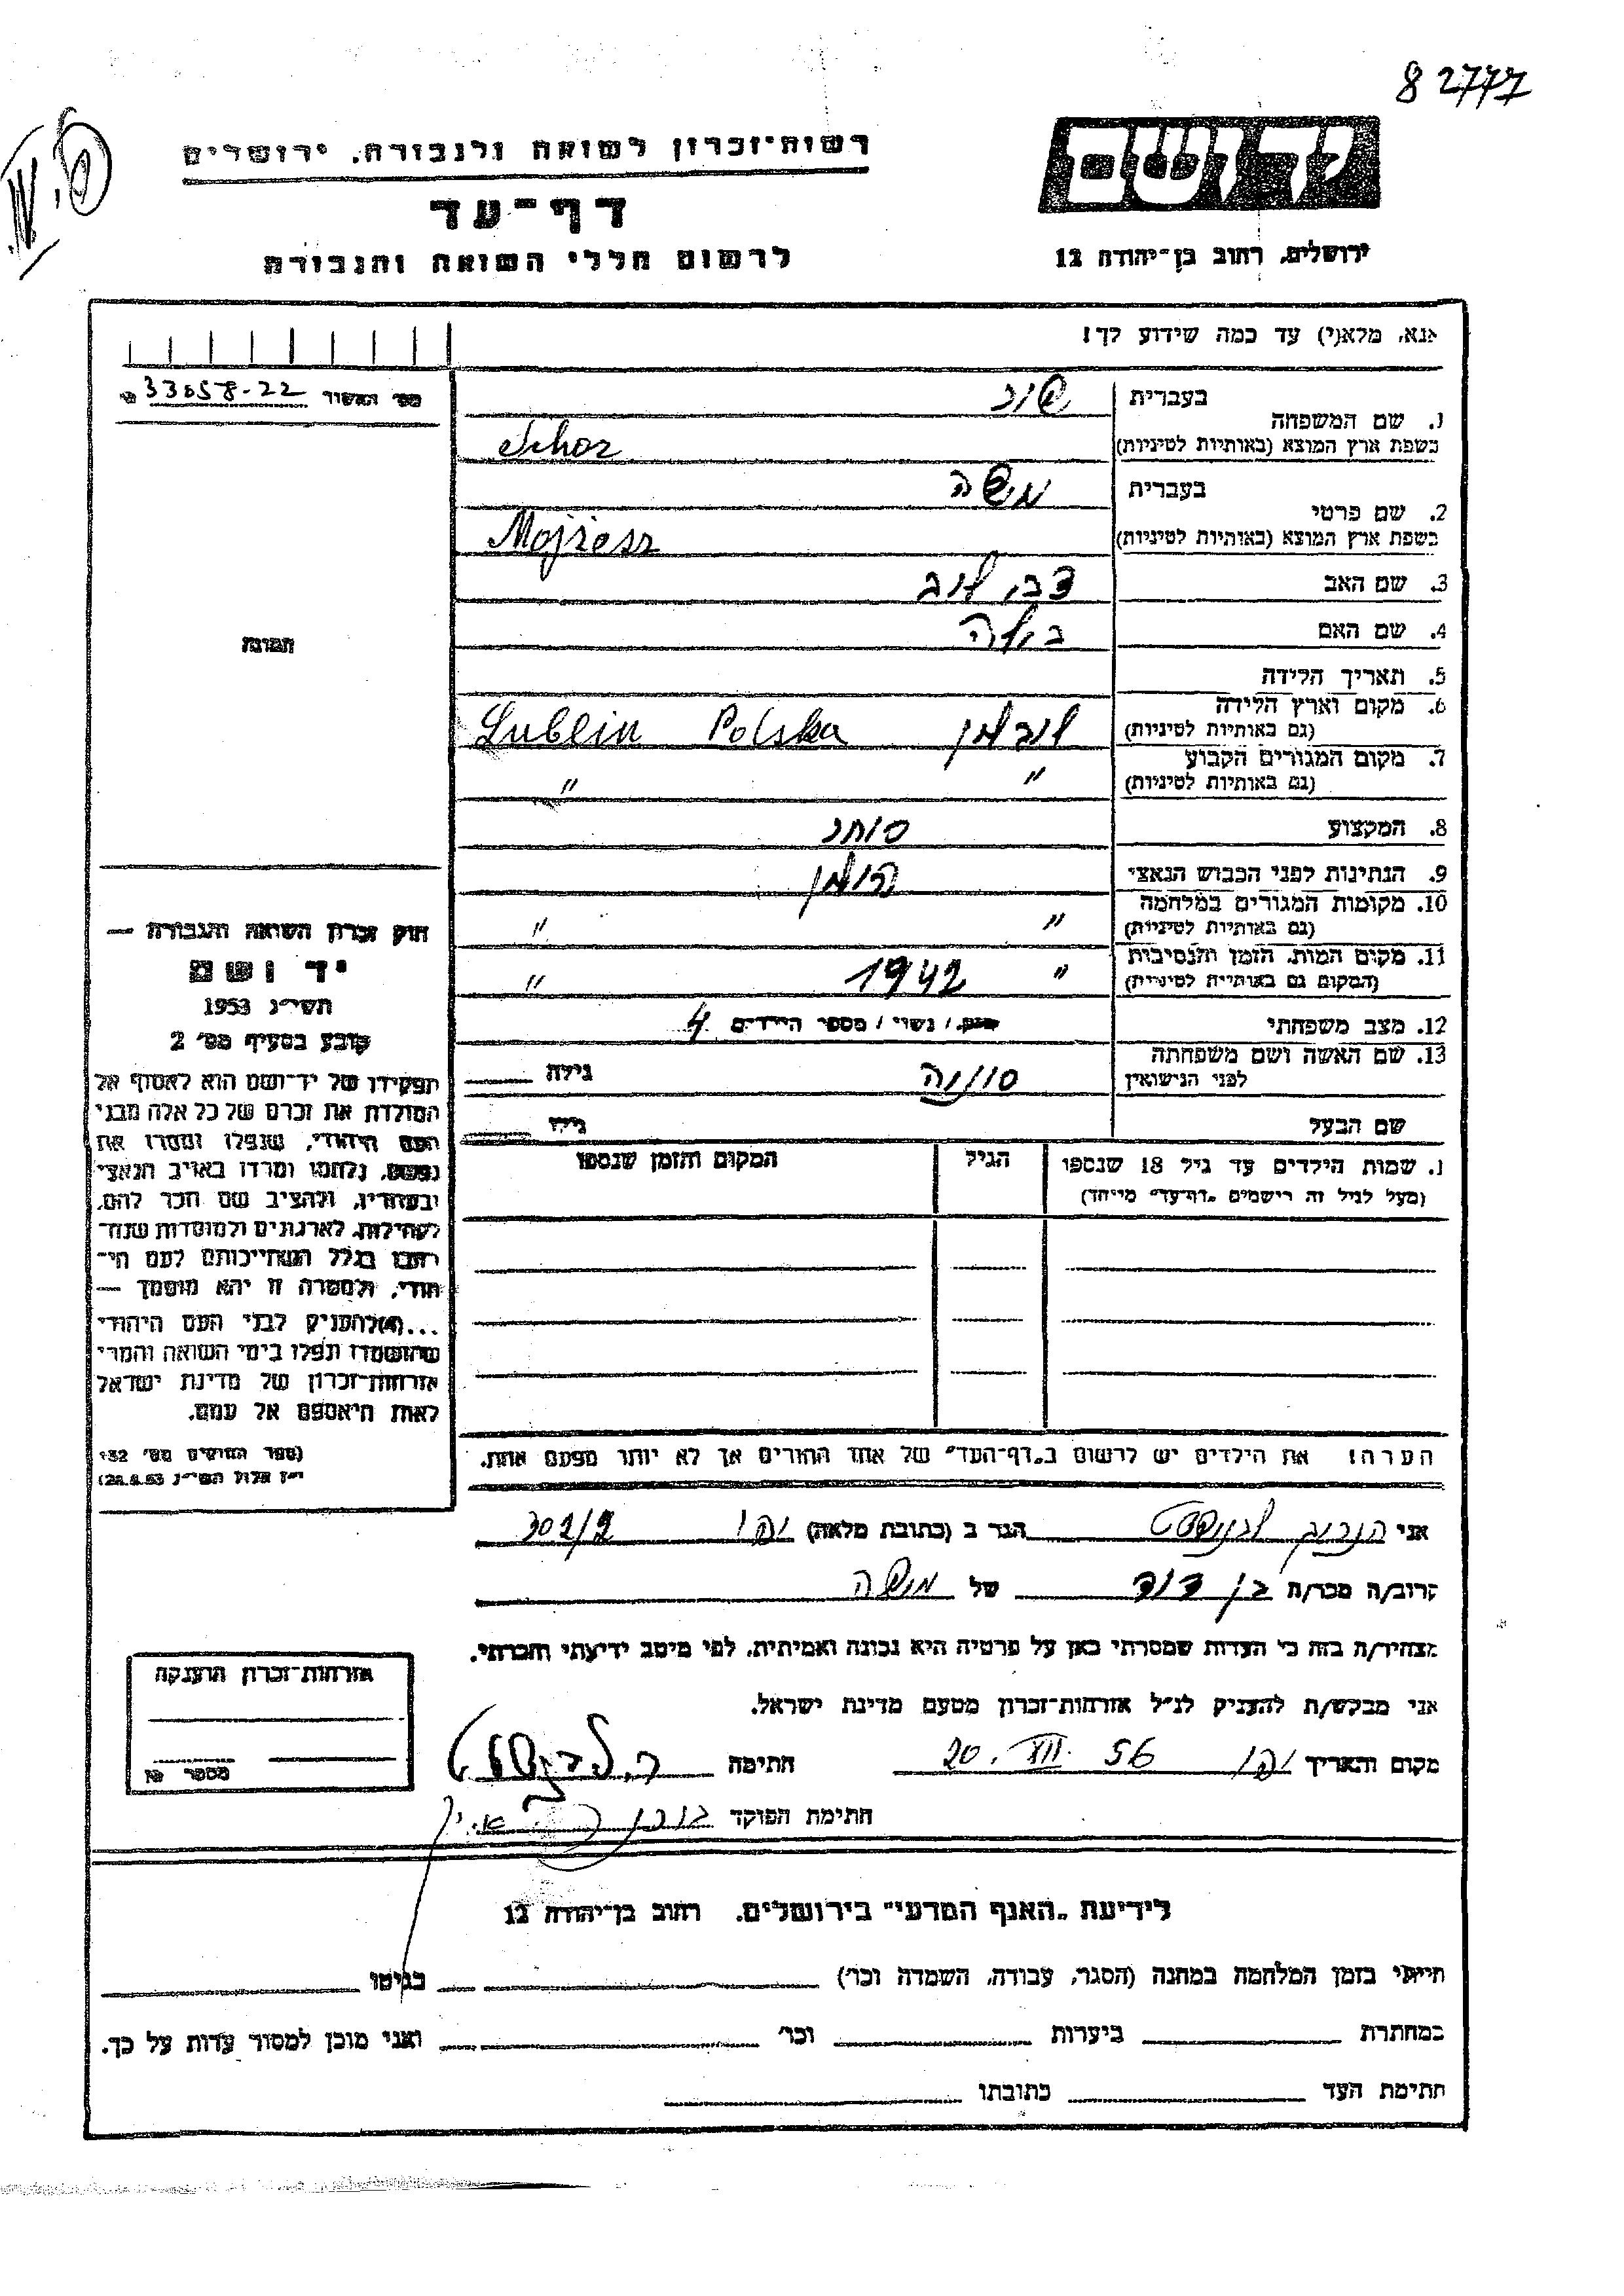 82777
רשות-זכרון לשואה ולגבורה, ירושלים
דף-עד
לרשום חללי השואה והגבורה
ידושם
ירושלים, רחוב בן-יהודה 12
אנא, מלא(י) עד כמה שידוע לך!
מס' האשור 33058-22
בעברית שור
1. שם המשפחה
בשפת ארץ המוצא (באותיות לטיניות) Schor
בעברית משה
2. שם פרטי
בשפת ארץ המוצא (באותיות לטיניות) Mojżesz
3. שם האב צבי לוב
4. שם האם בילה
5. תאריך הלידה
6. מקום וארץ הלידה
(גם באותיות לטיניות) לובלין Lublin Polska
7. מקום המגורים הקבוע
(גם באותיות לטיניות) " "
8. המקצוע סוחר
9. הנתינות לפני הכבוש הנאצי פולין
10. מקומות המגורים במלחמה
(גם באותיות לטיניות) " "
11. מקום המות, הזמן והנסיבות
(המקום גם באותיות לטיניות) " 1942 "
12. מצב משפחתי רווק / נשוי / מספר הילדים 4
13. שם האשה ושם משפחתה
לפני הנישואין גילה
שם הבעל גילו
שמות הילדים עד גיל 18 שנספו
(מעל לגיל זה רישמים "דף-עד" מייחד)
הגיל
המקום והזמן שנספו
הערה! את הילדים יש לרשום ב"דף-העד" של אחד ההורים אך לא יותר מפעם אחת.
תמונה
חוק זכרון השואה והגבורה —
יד ושם
תשי"ג 1953
קובע בסעיף מס' 2
תפקידו של יד-ושם הוא לאסוף אל
המולדת את זכרם של כל אלה מבני
העם היהודי, שנפלו ומסרו את
נפשם, נלחמו ומרדו באויב הנאצי
ובעוזריו, ולהציב שם וזכר להם,
לקהילות, לארגונים ולמוסדות שנח-
רבו בגלל השתייכותם לעם הי-
הודי, ולמטרה זו יהא מוסמך —
...(4) להעניק לבני העם היהודי
שהושמדו ונפלו בימי השואה והמרי
אזרחות-זכרון של מדינת ישראל
לאות היאספם אל עמם.
(ספר החוקים מס' 132
י"ז אלול תשי"ג 28.8.53)
אני הגר ב (כתובת מלאה) יפו 302/2
קרוב/ה מכר/ה בן דוד של משה
מצהיר/ה בזה כי העדות שמסרתי כאן על פרטיה היא נכונה ואמיתית, לפי מיטב ידיעתי והכרתי.
אני מבקש/ת להעניק לנ"ל אזרחות-זכרון מטעם מדינת ישראל.
מקום ותאריך יפו 20. VII. 56 חתימה
חתימת הפוקד
אזרחות-זכרון הוענקה
מספר
לידיעת "האגף המדעי" בירושלים, רחוב בן-יהודה 12
הייתי בזמן המלחמה במחנה (הסגר, עבודה, השמדה וכו') בגיטו
במחתרת ביערות וכו' ואני מוכן למסור עדות על כך.
חתימת העד כתובתו